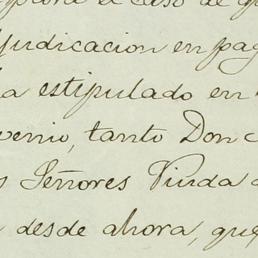 el caso de
judicacion en pag
a estipulado en
venio, tanto Don
s Señores Viuda
desde ahora, que